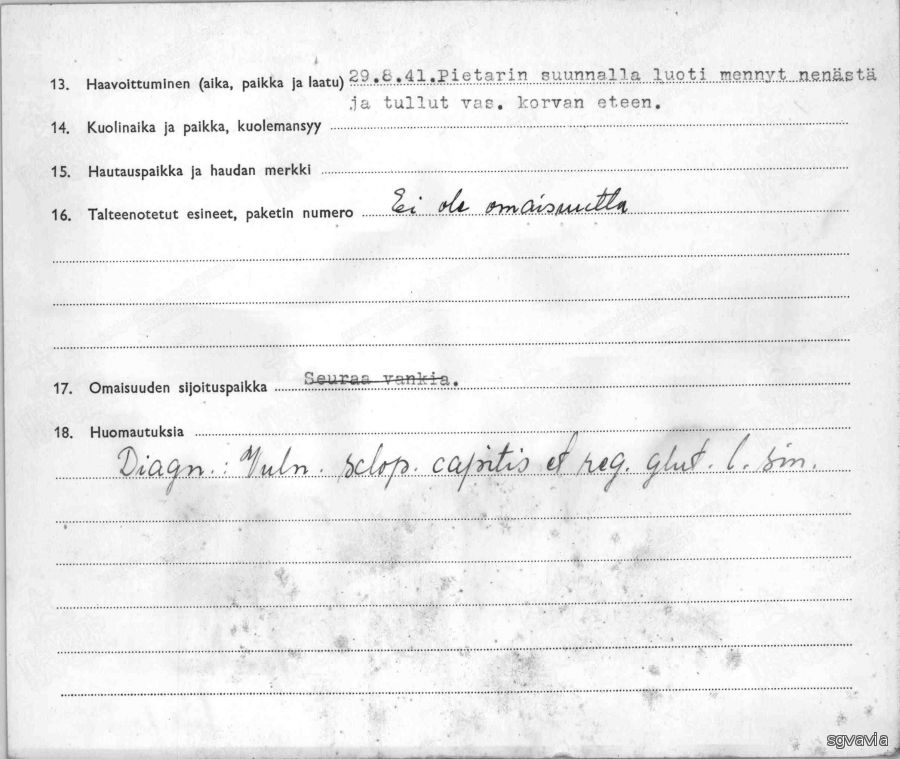 13. Haavoittuminen (aika, paikka ja laatu) 29.8.41.Pietarin suunnalla luoti mennyt nenästä
ja tullut vas. korvan eteen.
14. Kuolinaika ja paikka, kuolemansyy
15. Hautauspaikka ja haudan merkki
16. Talteenotetut esineet, paketin numero Ei ole omaisuutta
17. Omaisuuden sijoituspaikka Seuraa vankia.
18. Huomautuksia
Diagn.: Vuln. sclop. capitis et reg. glut. l. sin.
sgvavia